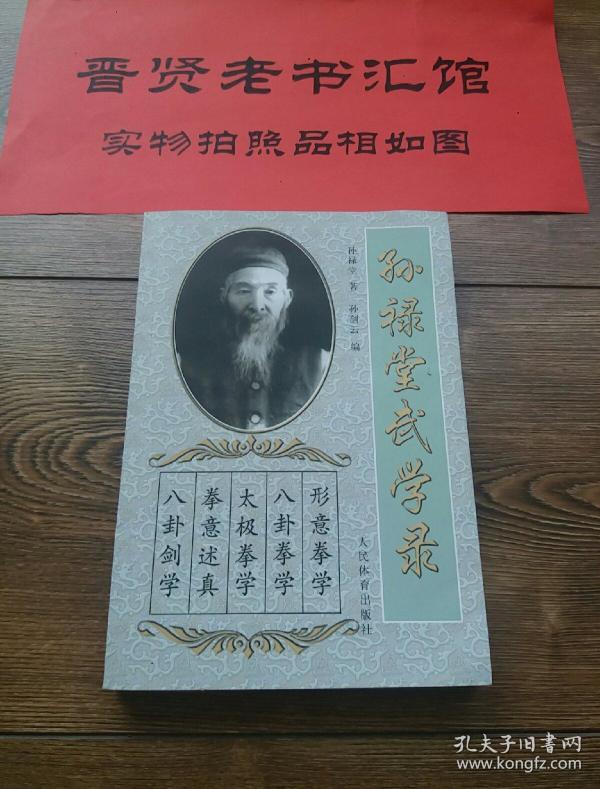 晋贤老书汇馆
实物拍照品相如图
孙禄堂武学录
孙禄堂 著 孙剑云 编
形意拳学
八卦拳学
太极拳学
拳意述真
八卦剑学
人民体育出版社
孔夫子旧書网
www.kongfz.com